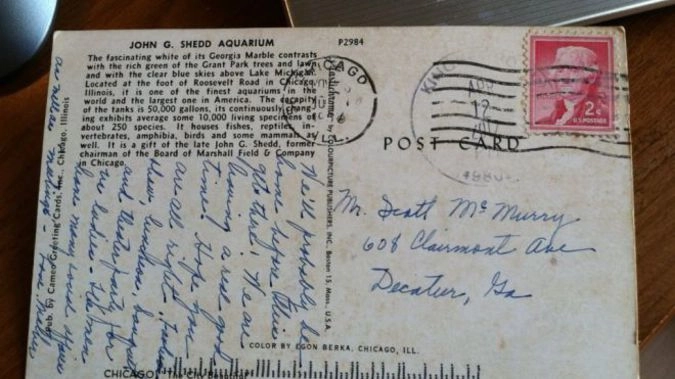 JOHN G. SHEDD AQUARIUM
P2984
The fascinating white of its Georgia Marble contrasts
with the rich green of the Grant Park trees and lawn
and with the clear blue skies above Lake Michigan.
Located at the foot of Roosevelt Road in Chicago,
Illinois, it is one of the finest aquariums in the
world and the largest one in America. The capacity
of the tanks is 50,000 gallons, its continuously chang-
ing exhibits average some 10,000 living specimens of
about 250 species. It houses fishes, reptiles, in-
vertebrates, amphibia, birds and some mammals as
well. It is a gift of the late John G. Shedd, former
chairman of the Board of Marshall Field & Company
in Chicago.
We'll probably be
home before this
gets there! We are
having a real good
time. Hope you
are all right.
luncheon,
and theater party for
the ladies - The men
have many
meetings -
Pub. by Cameo Greeting Cards, Inc., Chicago, Illinois
by COLOURPICTURE PUBLISHERS, INC., Boston 15, Mass., U.S.A.
COLOR BY EGON BERKA, CHICAGO, ILL.
CHICAGO "The City Beautiful"
2¢
U.S. POSTAGE
POST CARD
Mr. Scott McMurry
608 Clairmont Ave
Decatur, Ga